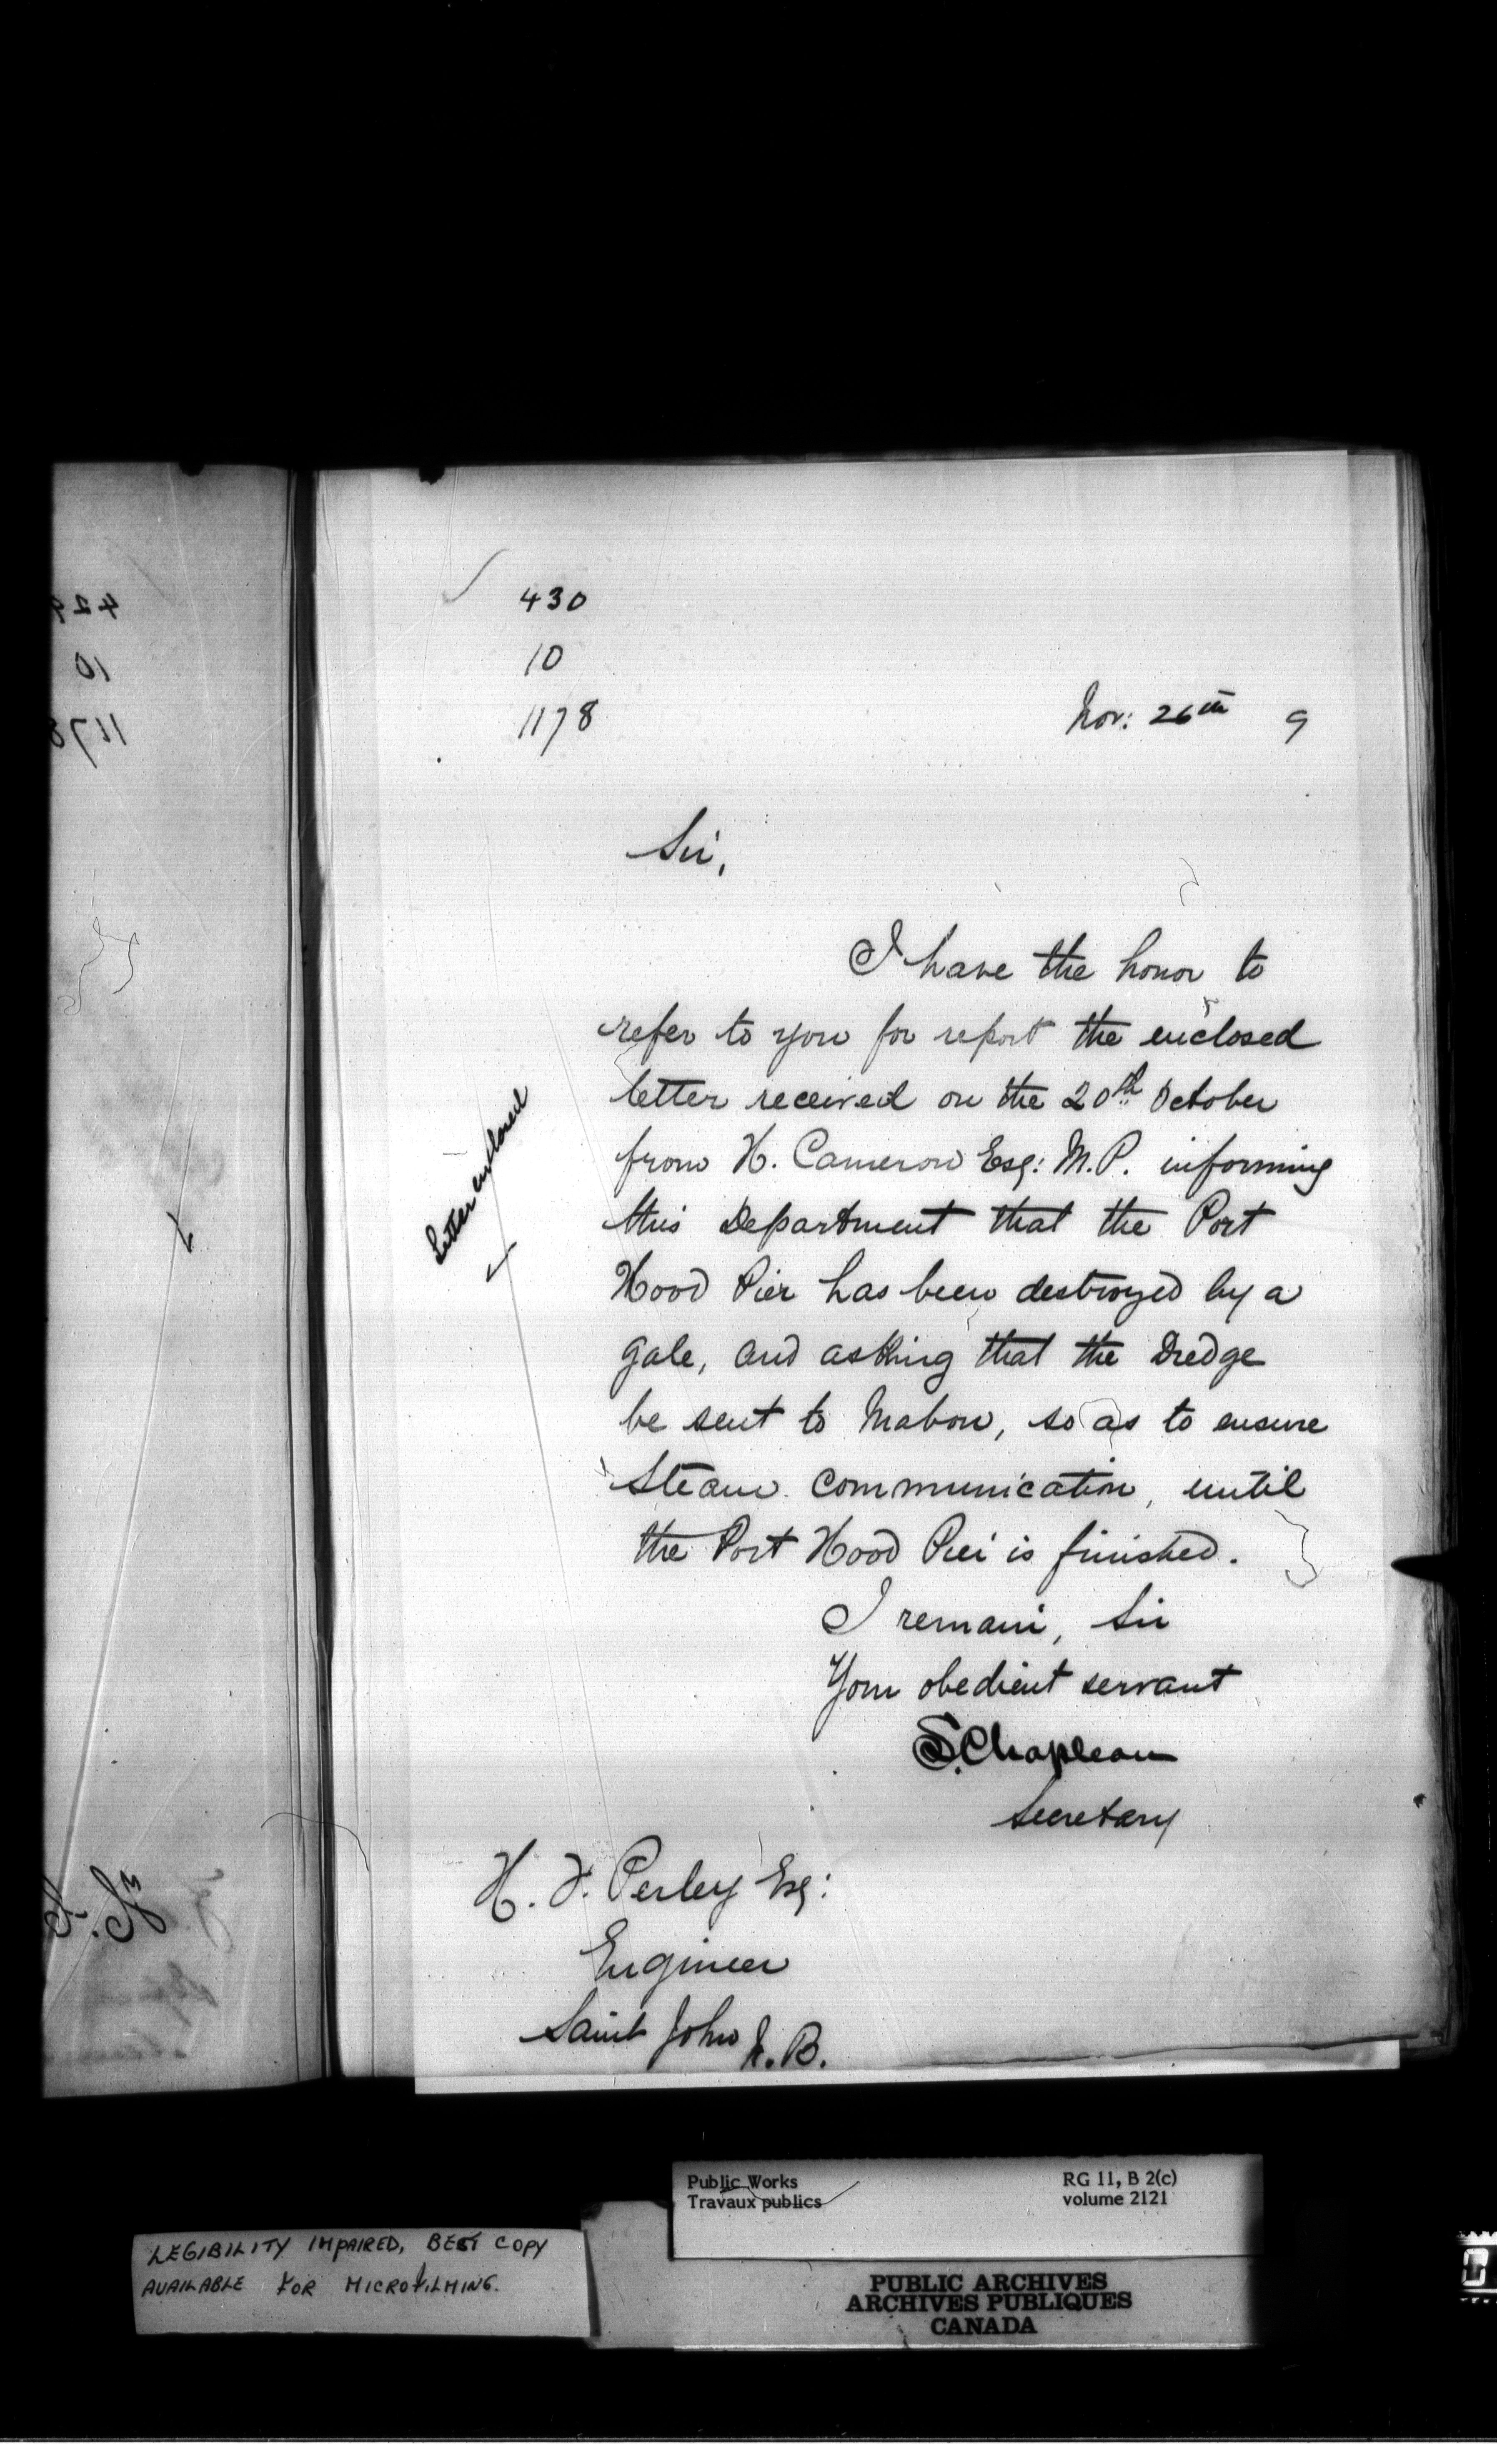 430
10
1178
Nov: 26th 9
Sir,
I have the honor to
refer to you for report the enclosed
letter received on the 20th October
from H. Cameron Esq: M.P. informing
this Department that the Port
Hood Pier has been destroyed by a
gale, and asking that the Dredge
be sent to Mabou, so as to ensure
Steam communication, until
the Port Hood Pier is finished.
I remain, Sir
Your obedient servant
S. Chapleau
Secretary
Letter enclosed
H. F. Perley Esq:
Engineer
Saint John N.B.
Public Works
Travaux publics
RG 11, B 2(c)
volume 2121
LEGIBILITY IMPAIRED, BEST COPY
AVAILABLE FOR MICROFILMING.
PUBLIC ARCHIVES
ARCHIVES PUBLIQUES
CANADA